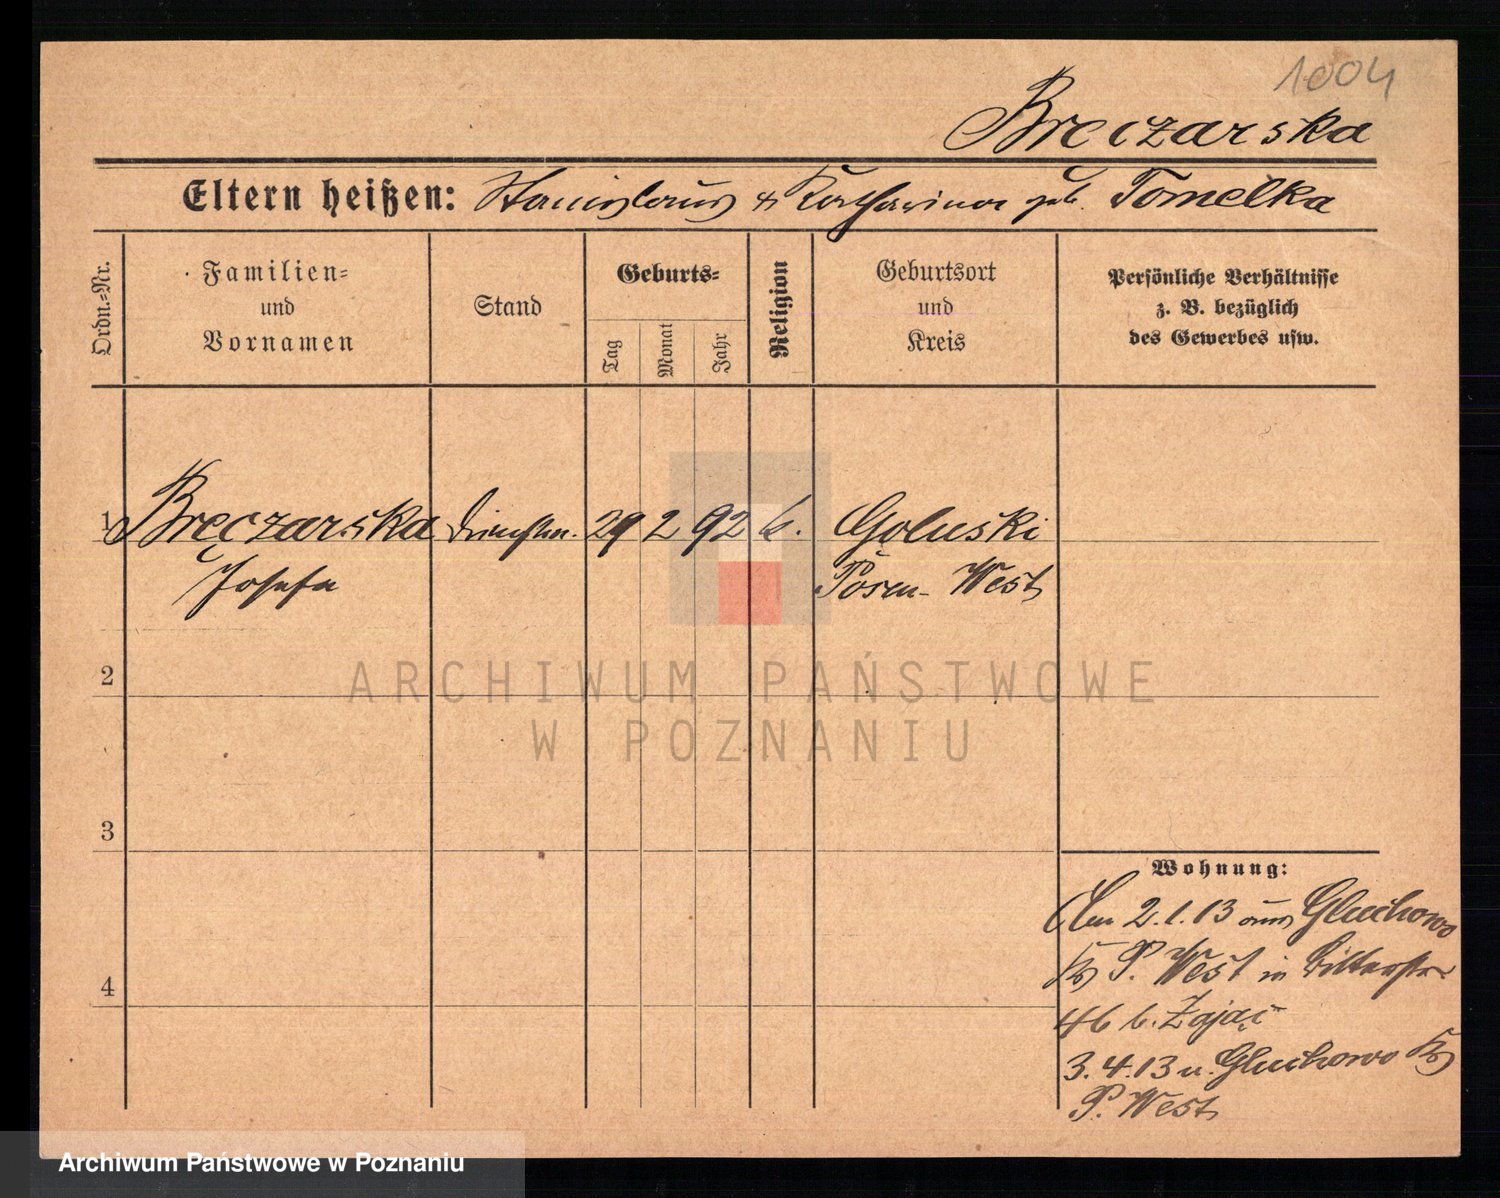 1004
Breczarska
Eltern heißen: Stanislaus & Katharina geb. Tomelka
Ordn.-Nr.
Familien-
und
Vornamen
Stand
Geburts-
Tag
Monat
Jahr
Religion
Geburtsort
und
Kreis
Persönliche Verhältnisse
z. B. bezüglich
des Gewerbes usw.
1 Breczarska Dienstm. 29 2 92 k. Goluski
Josefa Posen-West
2
3
4
ARCHIWUM PAŃSTWOWE
W POZNANIU
Wohnung:
Am 2.1.13 aus Gluchowo
Kr P. West in Ritterstr.
46 b. Zając
3.4.13 n. Gluchowo Kr
P. West
Archiwum Państwowe w Poznaniu